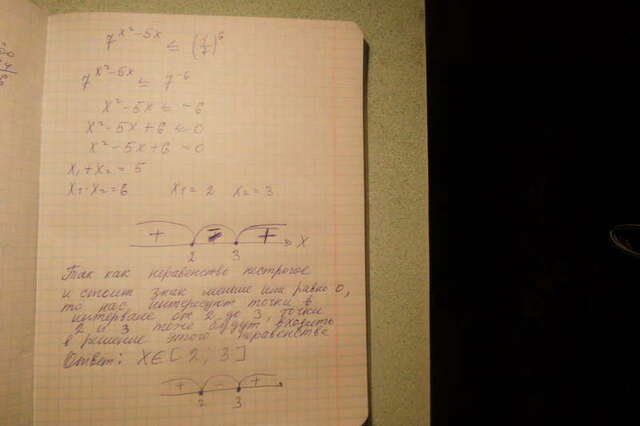 7^(x²-5x) ≤ (1/7)^6
7^(x²-5x) ≤ 7^-6
x² - 5x ≤ -6
x² - 5x + 6 ≤ 0
x² - 5x + 6 = 0
x₁ + x₂ = 5
x₁ · x₂ = 6 x₁ = 2 x₂ = 3
+ - + x
2 3
Так как неравенство нестрогое
и стоит знак меньше или равно 0,
то нас интересуют точки в
интервале от 2 до 3, точки
2 и 3 тоже будут входить
в решение этого неравенства
Ответ: X∈[2; 3]
+ - +
2 3